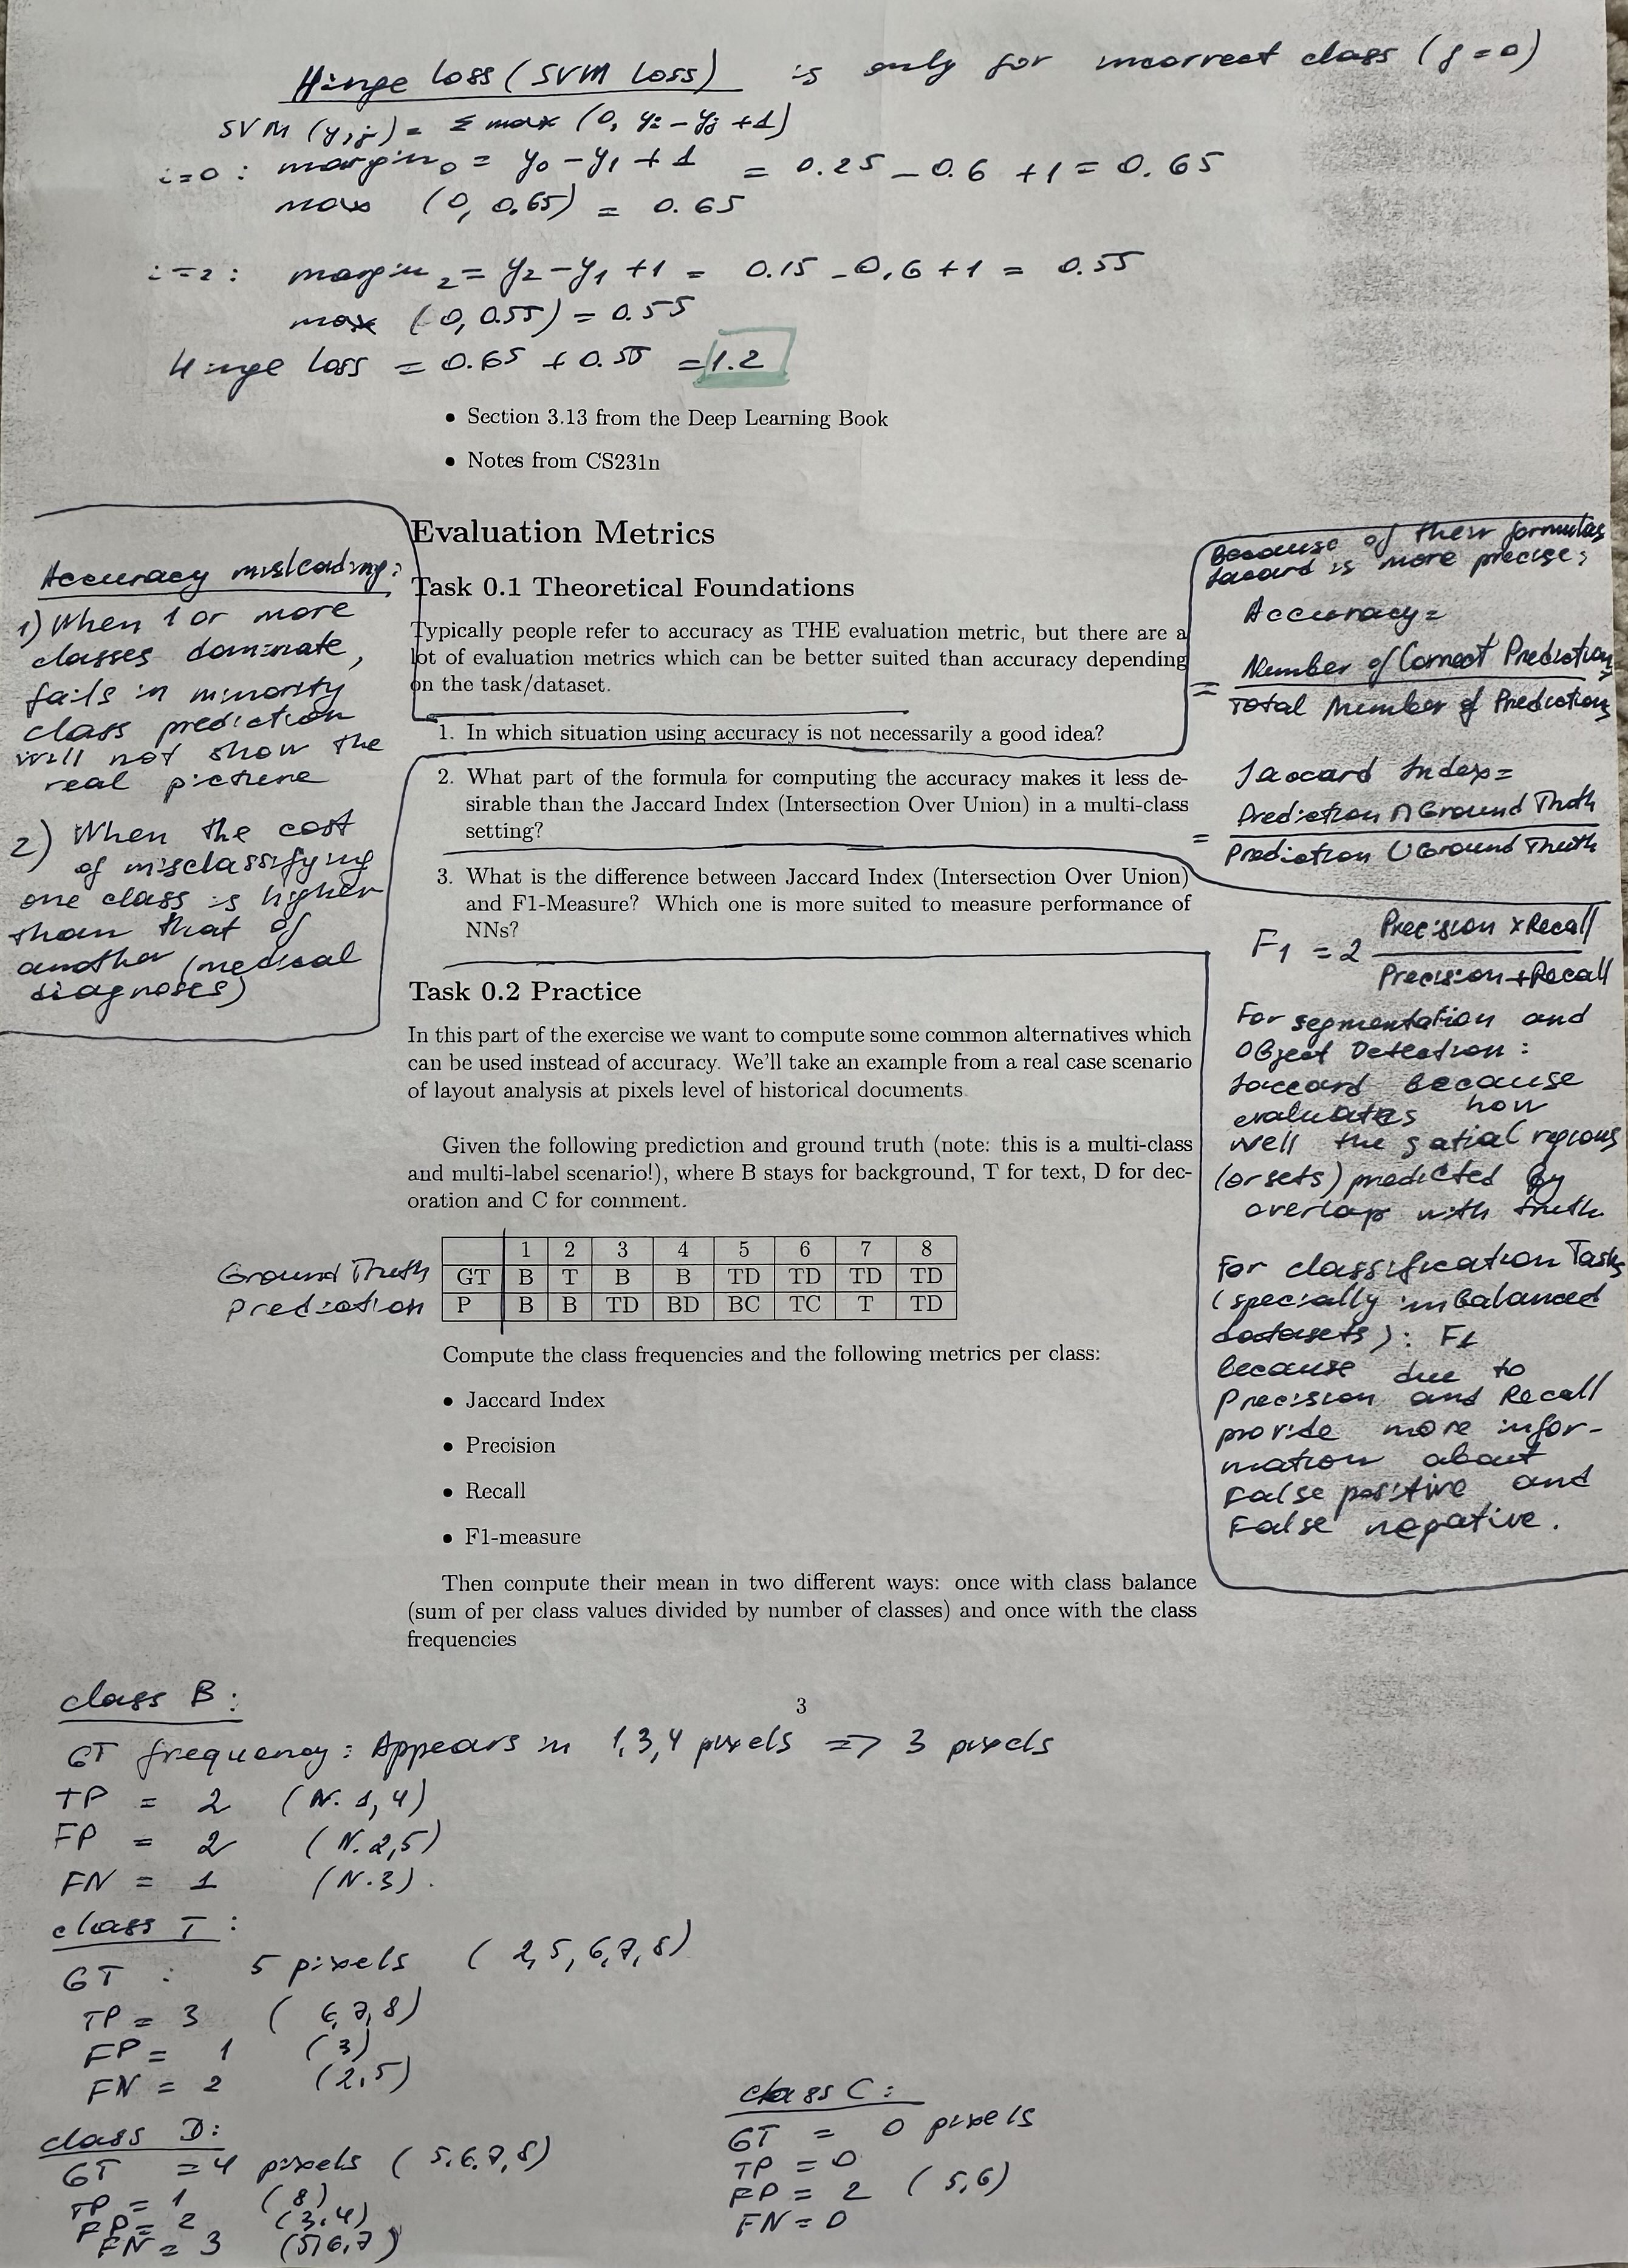 Hinge loss (SVM loss) is only for incorrect class (j=0)
SVM (y,j) = Σ max (0, yi - yj + 1)
i=0 : margin0 = y0 - y1 + 1 = 0.25 - 0.6 + 1 = 0.65
max (0, 0.65) = 0.65
i=2 : margin2 = y2 - y1 + 1 = 0.15 - 0.6 + 1 = 0.55
max (0, 0.55) = 0.55
Hinge loss = 0.65 + 0.55 = 1.2
• Section 3.13 from the Deep Learning Book
• Notes from CS231n
Accuracy misleading:
1) When 1 or more
classes dominate,
fails in minority
class prediction
will not show the
real picture
2) When the cost
of misclassifying
one class is higher
than that of
another (medical
diagnoses)
Evaluation Metrics
Task 0.1 Theoretical Foundations
Typically people refer to accuracy as THE evaluation metric, but there are a
lot of evaluation metrics which can be better suited than accuracy depending
on the task/dataset.
1. In which situation using accuracy is not necessarily a good idea?
2. What part of the formula for computing the accuracy makes it less de-
sirable than the Jaccard Index (Intersection Over Union) in a multi-class
setting?
3. What is the difference between Jaccard Index (Intersection Over Union)
and F1-Measure? Which one is more suited to measure performance of
NNs?
Because of their formulas
Jaccard is more precise:
Accuracy =
= Number of Correct Predictions
Total Number of Predictions
Jaccard Index =
= Prediction ∩ Ground Truth
Prediction ∪ Ground Truth
F1 = 2 Precision × Recall
Precision + Recall
For segmentation and
Object Detection :
Jaccard because
evaluates how
well the spatial regions
(or sets) predicted by
overlap with truth
For classification Tasks
(specially imbalanced
datasets) : F1
because due to
Precision and Recall
provide more infor-
mation about
False positive and
False negative.
Task 0.2 Practice
In this part of the exercise we want to compute some common alternatives which
can be used instead of accuracy. We'll take an example from a real case scenario
of layout analysis at pixels level of historical documents.
Given the following prediction and ground truth (note: this is a multi-class
and multi-label scenario!), where B stays for background, T for text, D for dec-
oration and C for comment.
1 2 3 4 5 6 7 8
Ground Truth GT B T B B TD TD TD TD
Prediction P B B TD BD BC TC T TD
Compute the class frequencies and the following metrics per class:
• Jaccard Index
• Precision
• Recall
• F1-measure
Then compute their mean in two different ways: once with class balance
(sum of per class values divided by number of classes) and once with the class
frequencies
3
class B :
GT frequency : Appears in 1,3,4 pixels => 3 pixels
TP = 2 (N. 1,4)
FP = 2 (N. 2,5)
FN = 1 (N. 3).
class T :
GT : 5 pixels (2,5,6,7,8)
TP = 3 (6,7,8)
FP = 1 (3)
FN = 2 (2,5)
class D:
GT = 4 pixels (5,6,7,8)
TP = 1 (8)
FP = 2 (3,4)
FN = 3 (5,6,7)
class C :
GT = 0 pixels
TP = 0
FP = 2 (5,6)
FN = 0